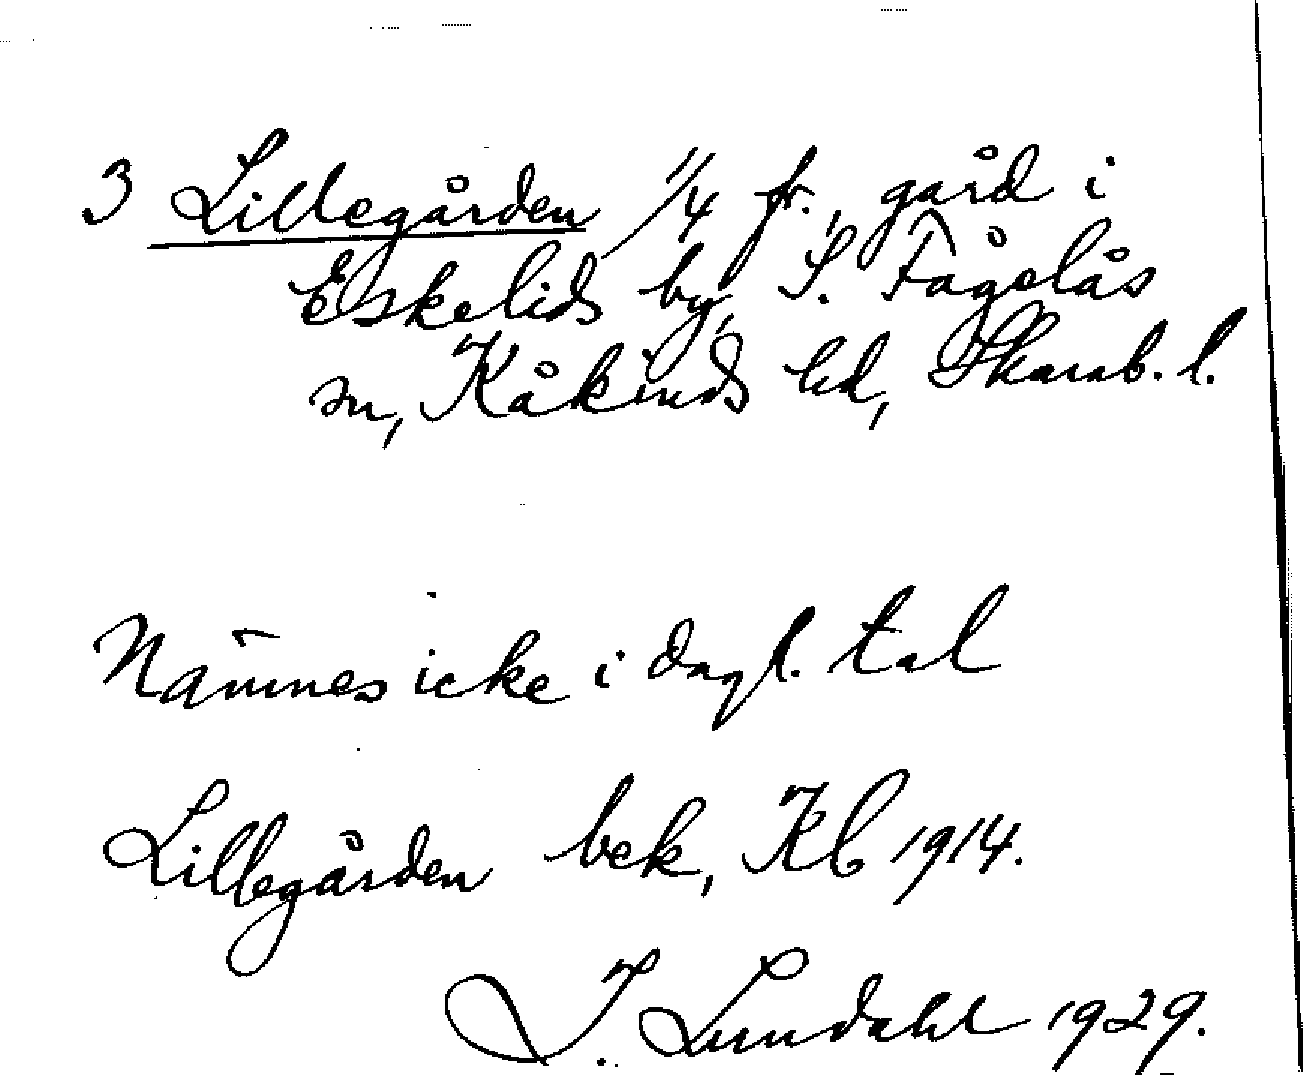 3 Lillegården 1/4 fr., gård i
Eskelids by, S. Fågelås
sn, Kåkinds hd, Skarab. l.
Nämnes icke i dagl. tal
Lillegården bek, Kb 1914.
I. Lundahl 1929.